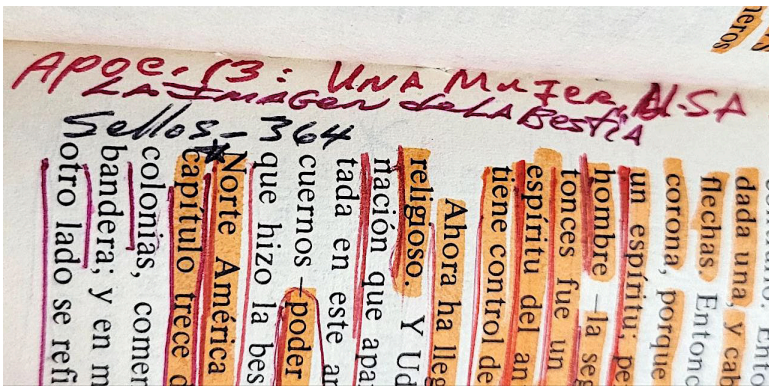 Apoc. 13: UNA MUJER, U.SA
LA IMAGEN de LA BESTIA
Sellos - 364
neros
dada una, y cab
flechas. Entonc
corona, porque
un espíritu; pe
hombre —la seg
tonces fue un
espíritu del an
tiene control de
Ahora ha lleg
religioso. Y Ud
nación que apa
tada en este ar
cuernos —poder
que hizo la bes
*Norte América
capítulo trece d
colonias, comer
bandera; y en m
otro lado se refi